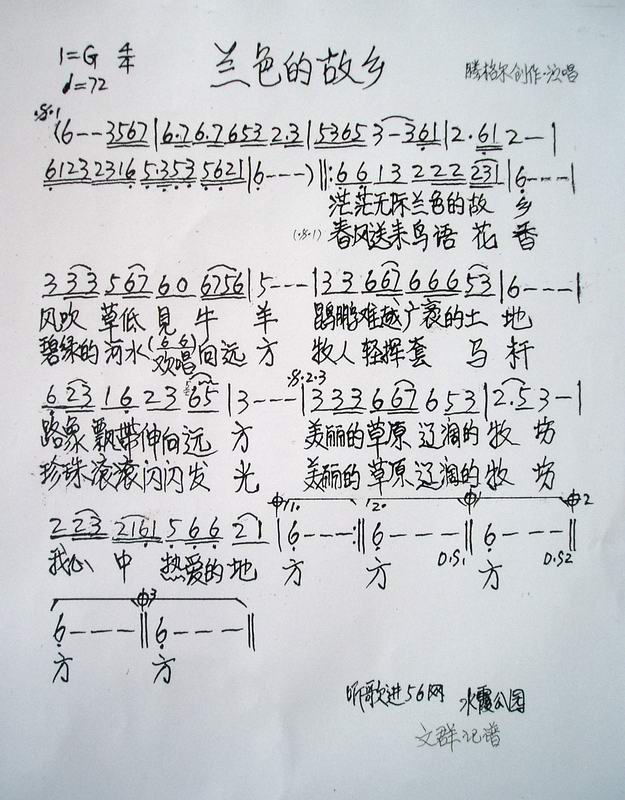 1=G 4/4 兰色的故乡 腾格尔创作·演唱
♩=72
·S·1
(6--3567|6·76·7653 2·3|5365 3-361|2·61 2-|
6123 2316 5·353 5621|6---)‖:6 6 1 3 2 2 2 231|6---|
茫茫无际兰色的故 乡
(·S·1) 春风送来鸟语 花 香
3 33 5 67 6 0 6756|5---|3 3 6 67 6 6 6 53|6---|
风吹 草低 見 牛 羊 鹍鹏难越广袤的土 地
碧绿的 河水(6 6 欢唱)向远 方 牧人 轻挥套 马 杆
·S·2·3
6 23 1 6 2 3 65|3---|3 3 3 6 67 6 5 3|2·5 3-|
路象 飘带伸向远 方 美丽的草原 辽润的 牧 坊
珍珠 滚滚闪闪发 光 美丽的草原 辽润的 牧 坊
2 23 2161 5 6 6 21|1. 6---:‖2. 6---‖6---‖
我心 中 热爱的 地 方 方 D.S1 方 D.S2
3
6---‖6---‖
方 方
听歌进56网 水霞公园
文群记谱